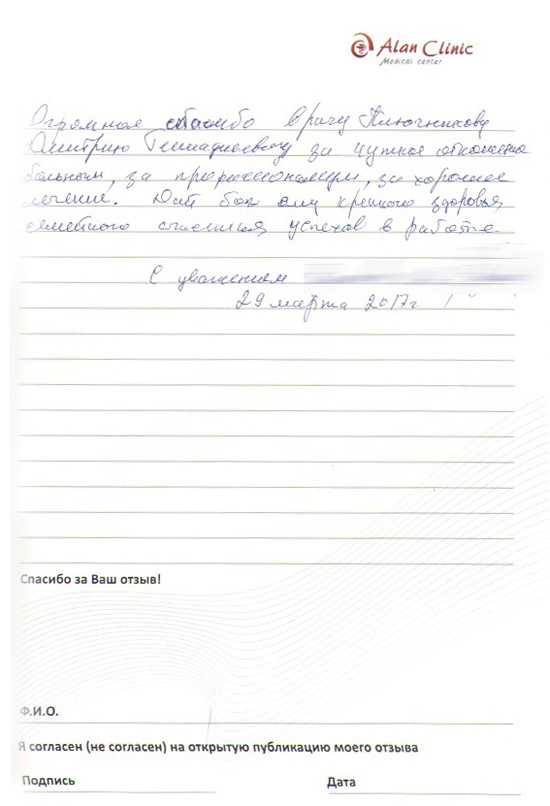 Alan Clinic
Medical center
Огромное спасибо врачу Ключникову
Дмитрию Геннадиевичу за чуткое отношение
больным, за профессионализм, за хорошее
лечение. Дай бог ему крепкого здоровья,
семейного счастья, успехов в работе
С уважением
29 марта 2017г
Спасибо за Ваш отзыв!
Ф.И.О.
Я согласен (не согласен) на открытую публикацию моего отзыва
Подпись Дата